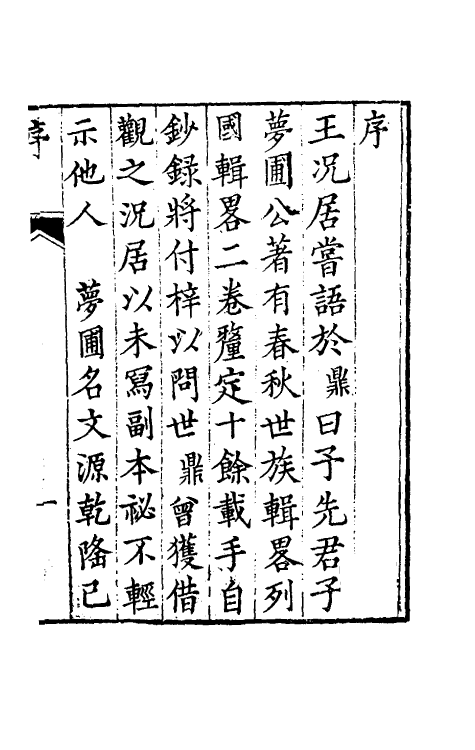 序
王況居嘗語於　鼎曰子先君子
夢圃公著有春秋世族輯畧列
國輯畧二卷釐定十餘載手自
鈔錄將付梓以問世　鼎曾獲借
觀之況居以未寫副本祕不輕
示他人　夢圃名文源乾隆己
序
一